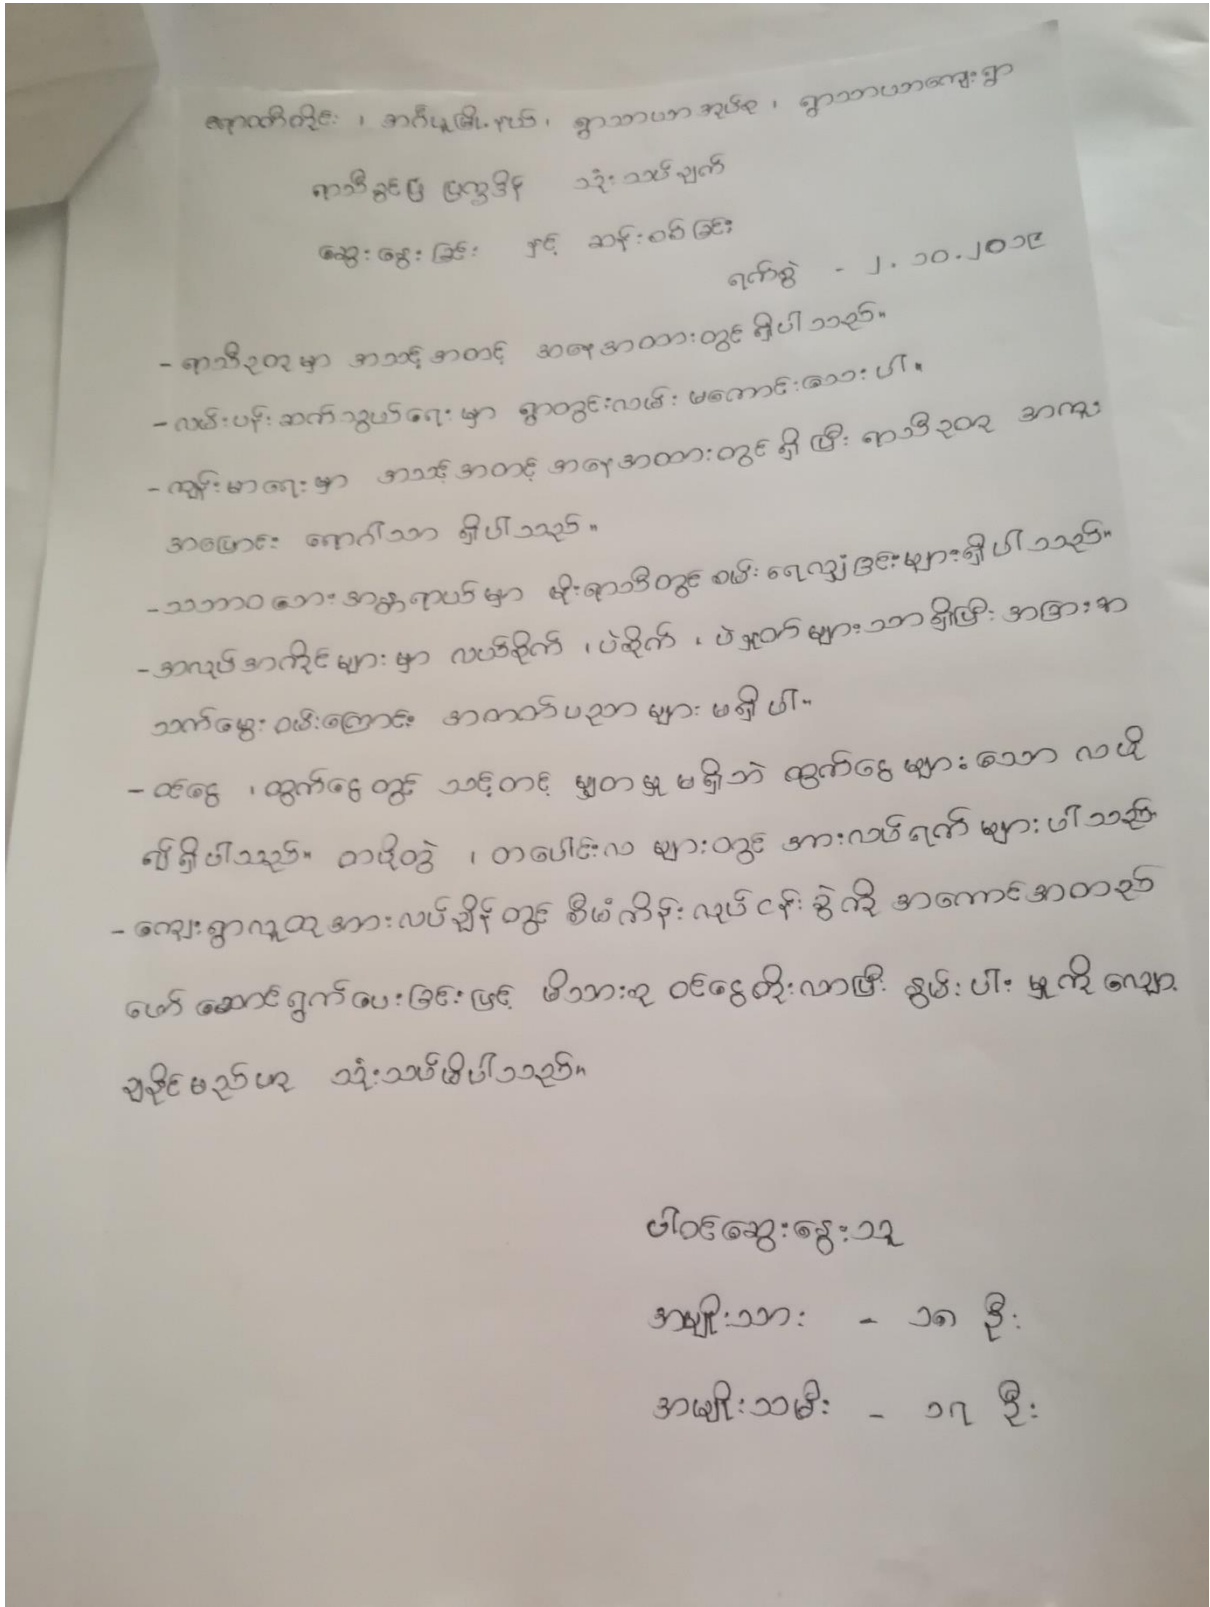 ဧရာဝတီတိုင်း ၊ အင်္ဂပူမြို့နယ်၊ ရွာသာယာအုပ်စု ၊ ရွာသာယာကျေးရွာ
ရာသီခွင်ပြ ပြက္ခဒိန် သုံးသပ်ချက်
ဆွေးနွေးခြင်း နှင့် ဆန်းစစ်ခြင်း
ရက်စွဲ - ၂.၁၀.၂၀၁၉
- ရာသီဥတုမှာ အသင့်အတင့် အနေအထားတွင် ရှိပါသည်။
- လမ်းပန်းဆက်သွယ်ရေးမှာ ရွာတွင်းလမ်း မကောင်းသေးပါ။
- ကျန်းမာရေးမှာ အသင့်အတင့် အနေအထားတွင် ရှိပြီး ရာသီဥတု အကူး
အပြောင်း ရောဂါသာ ရှိပါသည်။
- သဘာဝဘေးအန္တရာယ်မှာ မိုးရာသီတွင် စမ်းရေလျှံခြင်းများရှိပါသည်။
- အလုပ်အကိုင်များမှာ လယ်စိုက် ၊ ပဲစိုက် ၊ ပဲနှုတ်များသာရှိပြီး အခြားအ
သက်မွေးဝမ်းကြောင်း အတတ်ပညာများ မရှိပါ။
- ဝင်ငွေ ၊ ထွက်ငွေတွင် သင့်တင့် မျှတမှု မရှိဘဲ ထွက်ငွေများသော လပို
၍ရှိပါသည်။ တပို့တွဲ ၊ တပေါင်းလ များတွင် အားလပ်ရက်များပါသည်
- ကျေးရွာလူထုအားလပ်ချိန်တွင် စီမံကိန်းလုပ်ငန်းခွဲကို အကောင်အထည်
ဖော် ဆောင်ရွက်ပေးခြင်းဖြင့် မိသားစု ဝင်ငွေတိုးလာပြီး နွမ်းပါးမှုကို လျော့
ချနိုင်မည်ဟု သုံးသပ်မိပါသည်။
ပါဝင်ဆွေးနွေးသူ
အမျိုးသား - ၁၈ ဦး
အမျိုးသမီး - ၁၇ ဦး